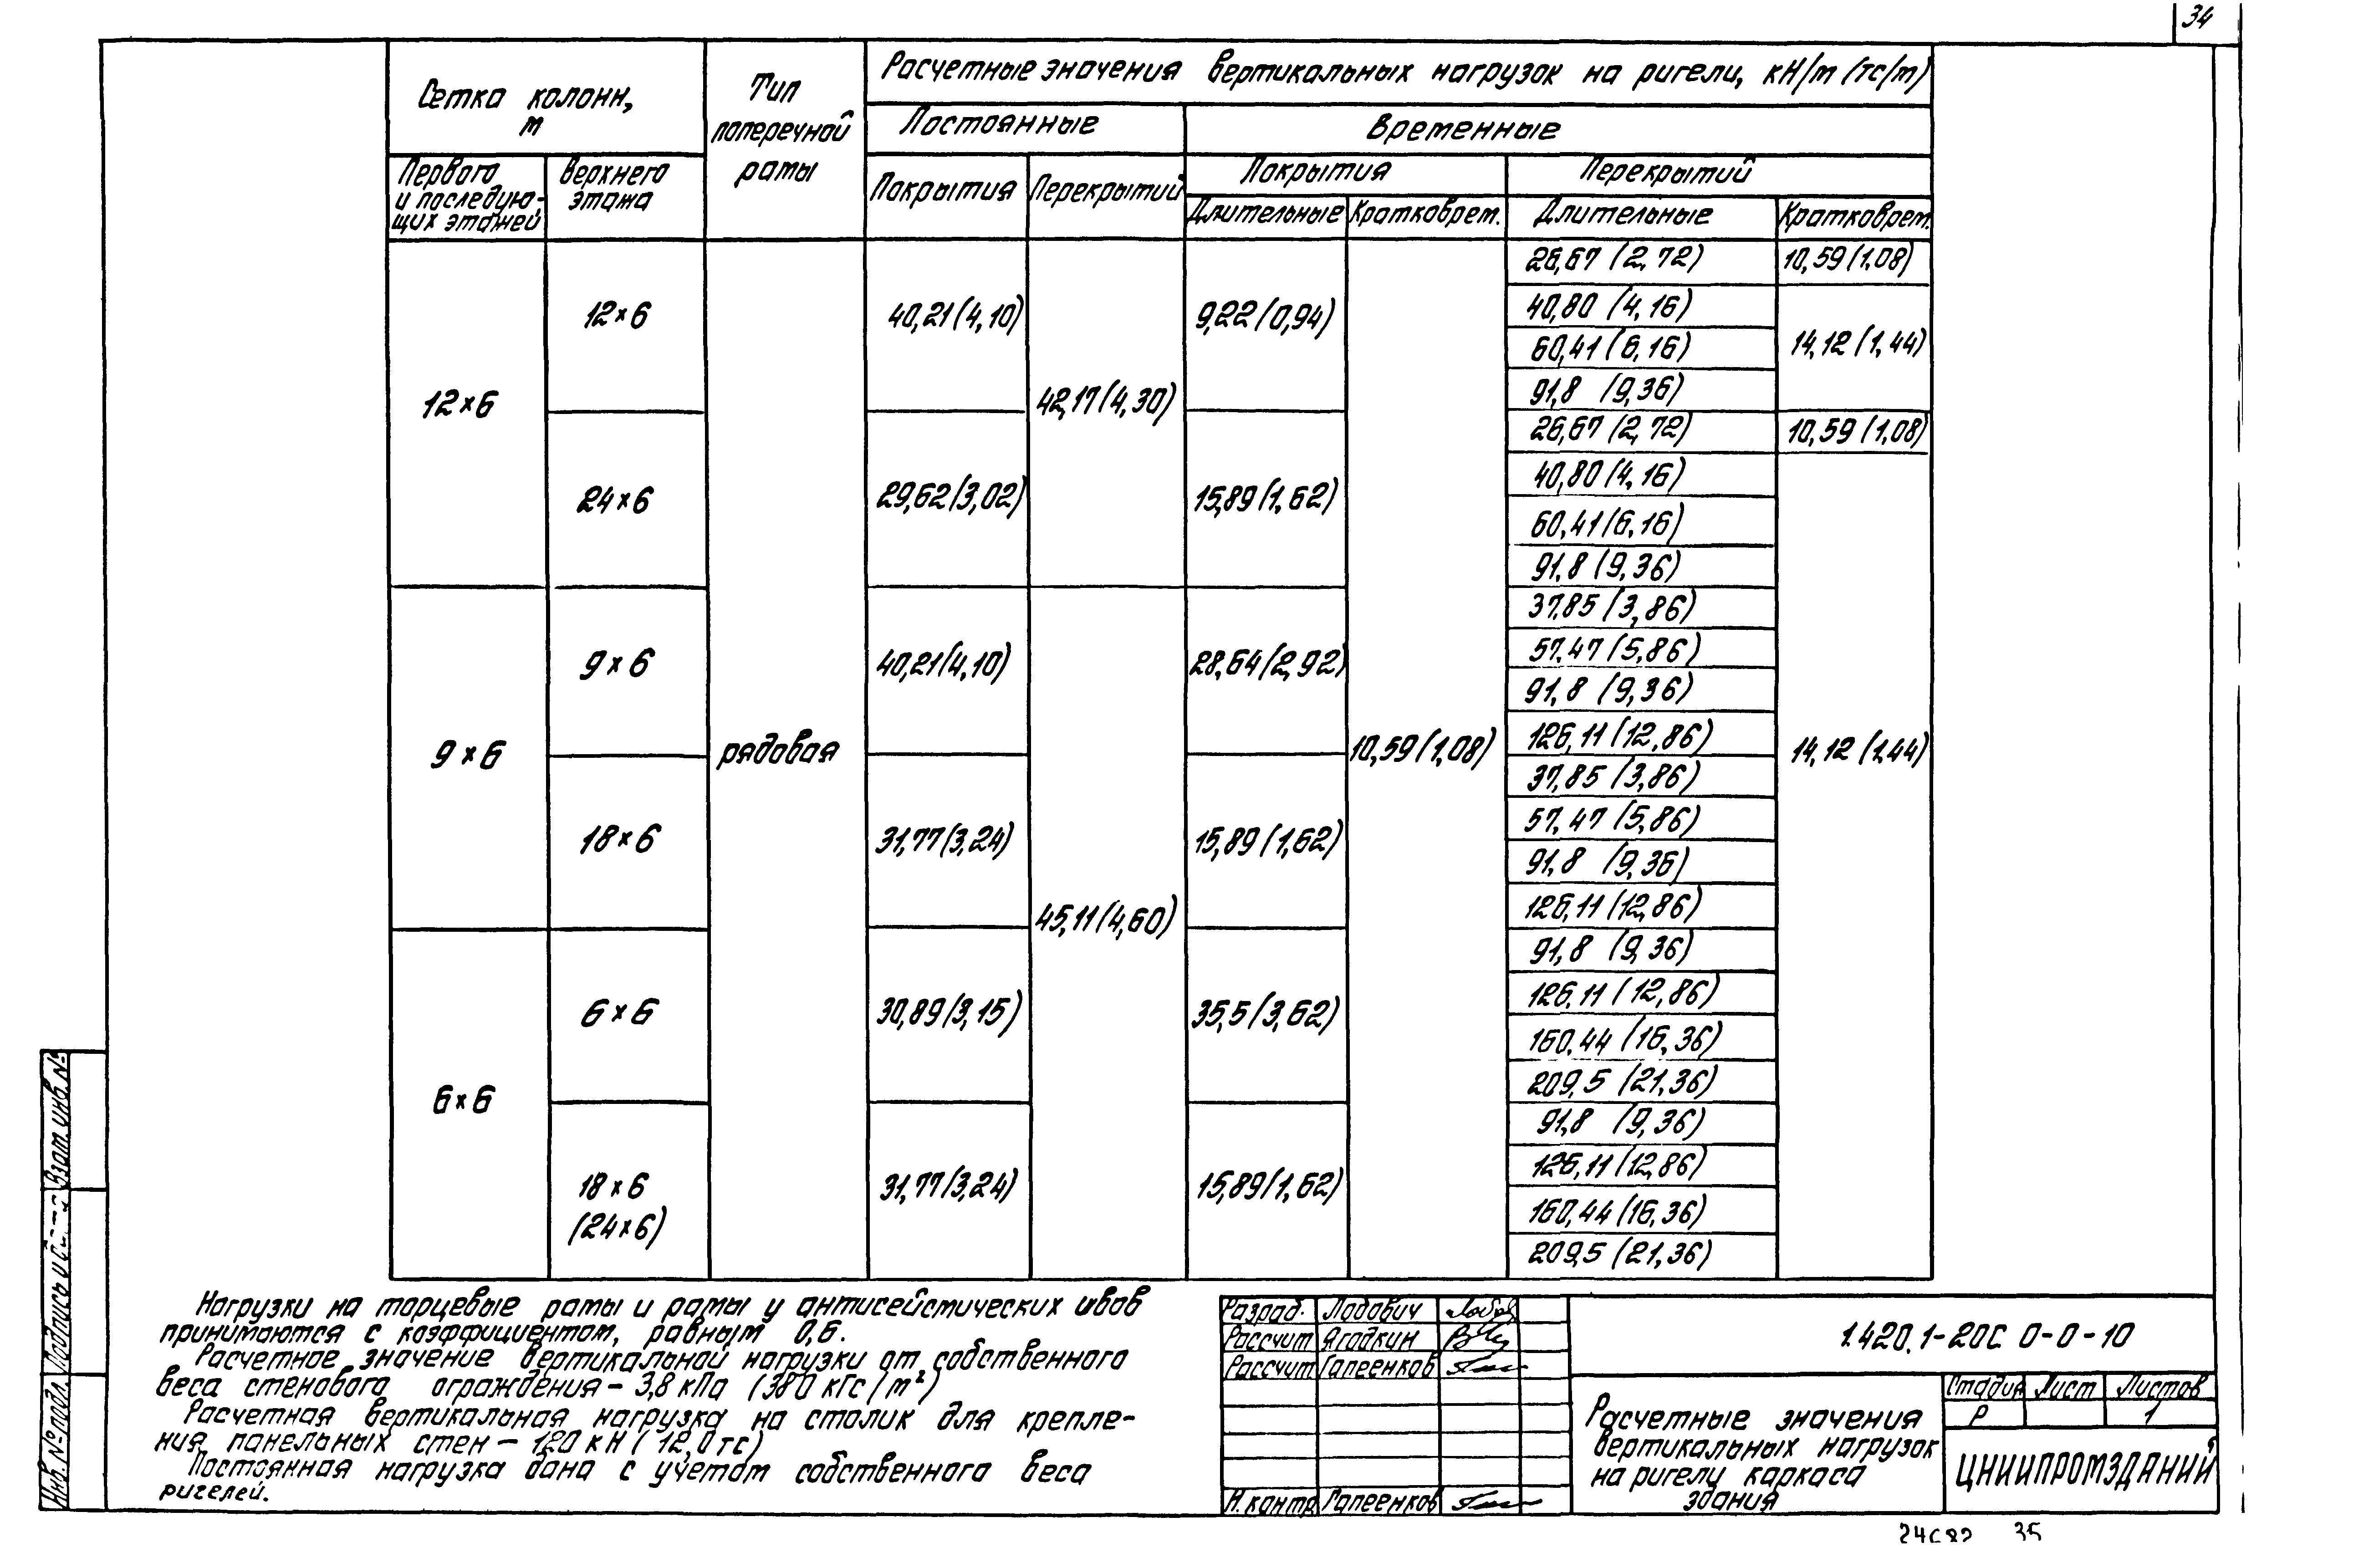 34
Расчетные значения вертикальных нагрузок на ригели, кН/м (тс/м)
Сетка колонн,
м
Тип
поперечной
рамы
Постоянные
Временные
Первого
и последую-
щих этажей
Верхнего
этажа
Покрытия
Перекрытий
Покрытия
Перекрытий
Длительные
Кратковрем.
Длительные
Кратковрем.
12×6
12×6
рядовая
40,21 (4,10)
42,17 (4,30)
9,22 (0,94)
10,59 (1,08)
26,67 (2,72)
10,59 (1,08)
40,80 (4,16)
14,12 (1,44)
60,41 (6,16)
91,8 (9,36)
24×6
29,62 (3,02)
15,89 (1,62)
26,67 (2,72)
10,59 (1,08)
40,80 (4,16)
14,12 (1,44)
60,41 (6,16)
91,8 (9,36)
9×6
9×6
40,21 (4,10)
45,11 (4,60)
28,64 (2,92)
37,85 (3,86)
57,47 (5,86)
91,8 (9,36)
126,11 (12,86)
18×6
31,77 (3,24)
15,89 (1,62)
37,85 (3,86)
57,47 (5,86)
91,8 (9,36)
126,11 (12,86)
6×6
6×6
30,89 (3,15)
35,5 (3,62)
91,8 (9,36)
126,11 (12,86)
160,44 (16,36)
209,5 (21,36)
18×6
(24×6)
31,77 (3,24)
15,89 (1,62)
91,8 (9,36)
126,11 (12,86)
160,44 (16,36)
209,5 (21,36)
Нагрузки на торцевые рамы и рамы у антисейсмических швов
принимаются с коэффициентом, равным 0,6.
Расчетное значение вертикальной нагрузки от собственного
веса стенового ограждения – 3,8 кПа (380 кгс/м²)
Расчетная вертикальная нагрузка на столик для крепле-
ния панельных стен – 120 кН (12,0 тс)
Постоянная нагрузка дана с учетом собственного веса
ригелей.
Разраб. Лодович
Рассчит Ягодкин
Рассчит Гапеенков
Н.контр Гапеенков
1.420.1-20с 0-0-10
Расчетные значения
вертикальных нагрузок
на ригели каркаса
здания
Стадия Лист Листов
Р 1
ЦНИИПРОМЗДАНИЙ
Взам.инв.№
Подпись и
Инв.№подл.
24682 35